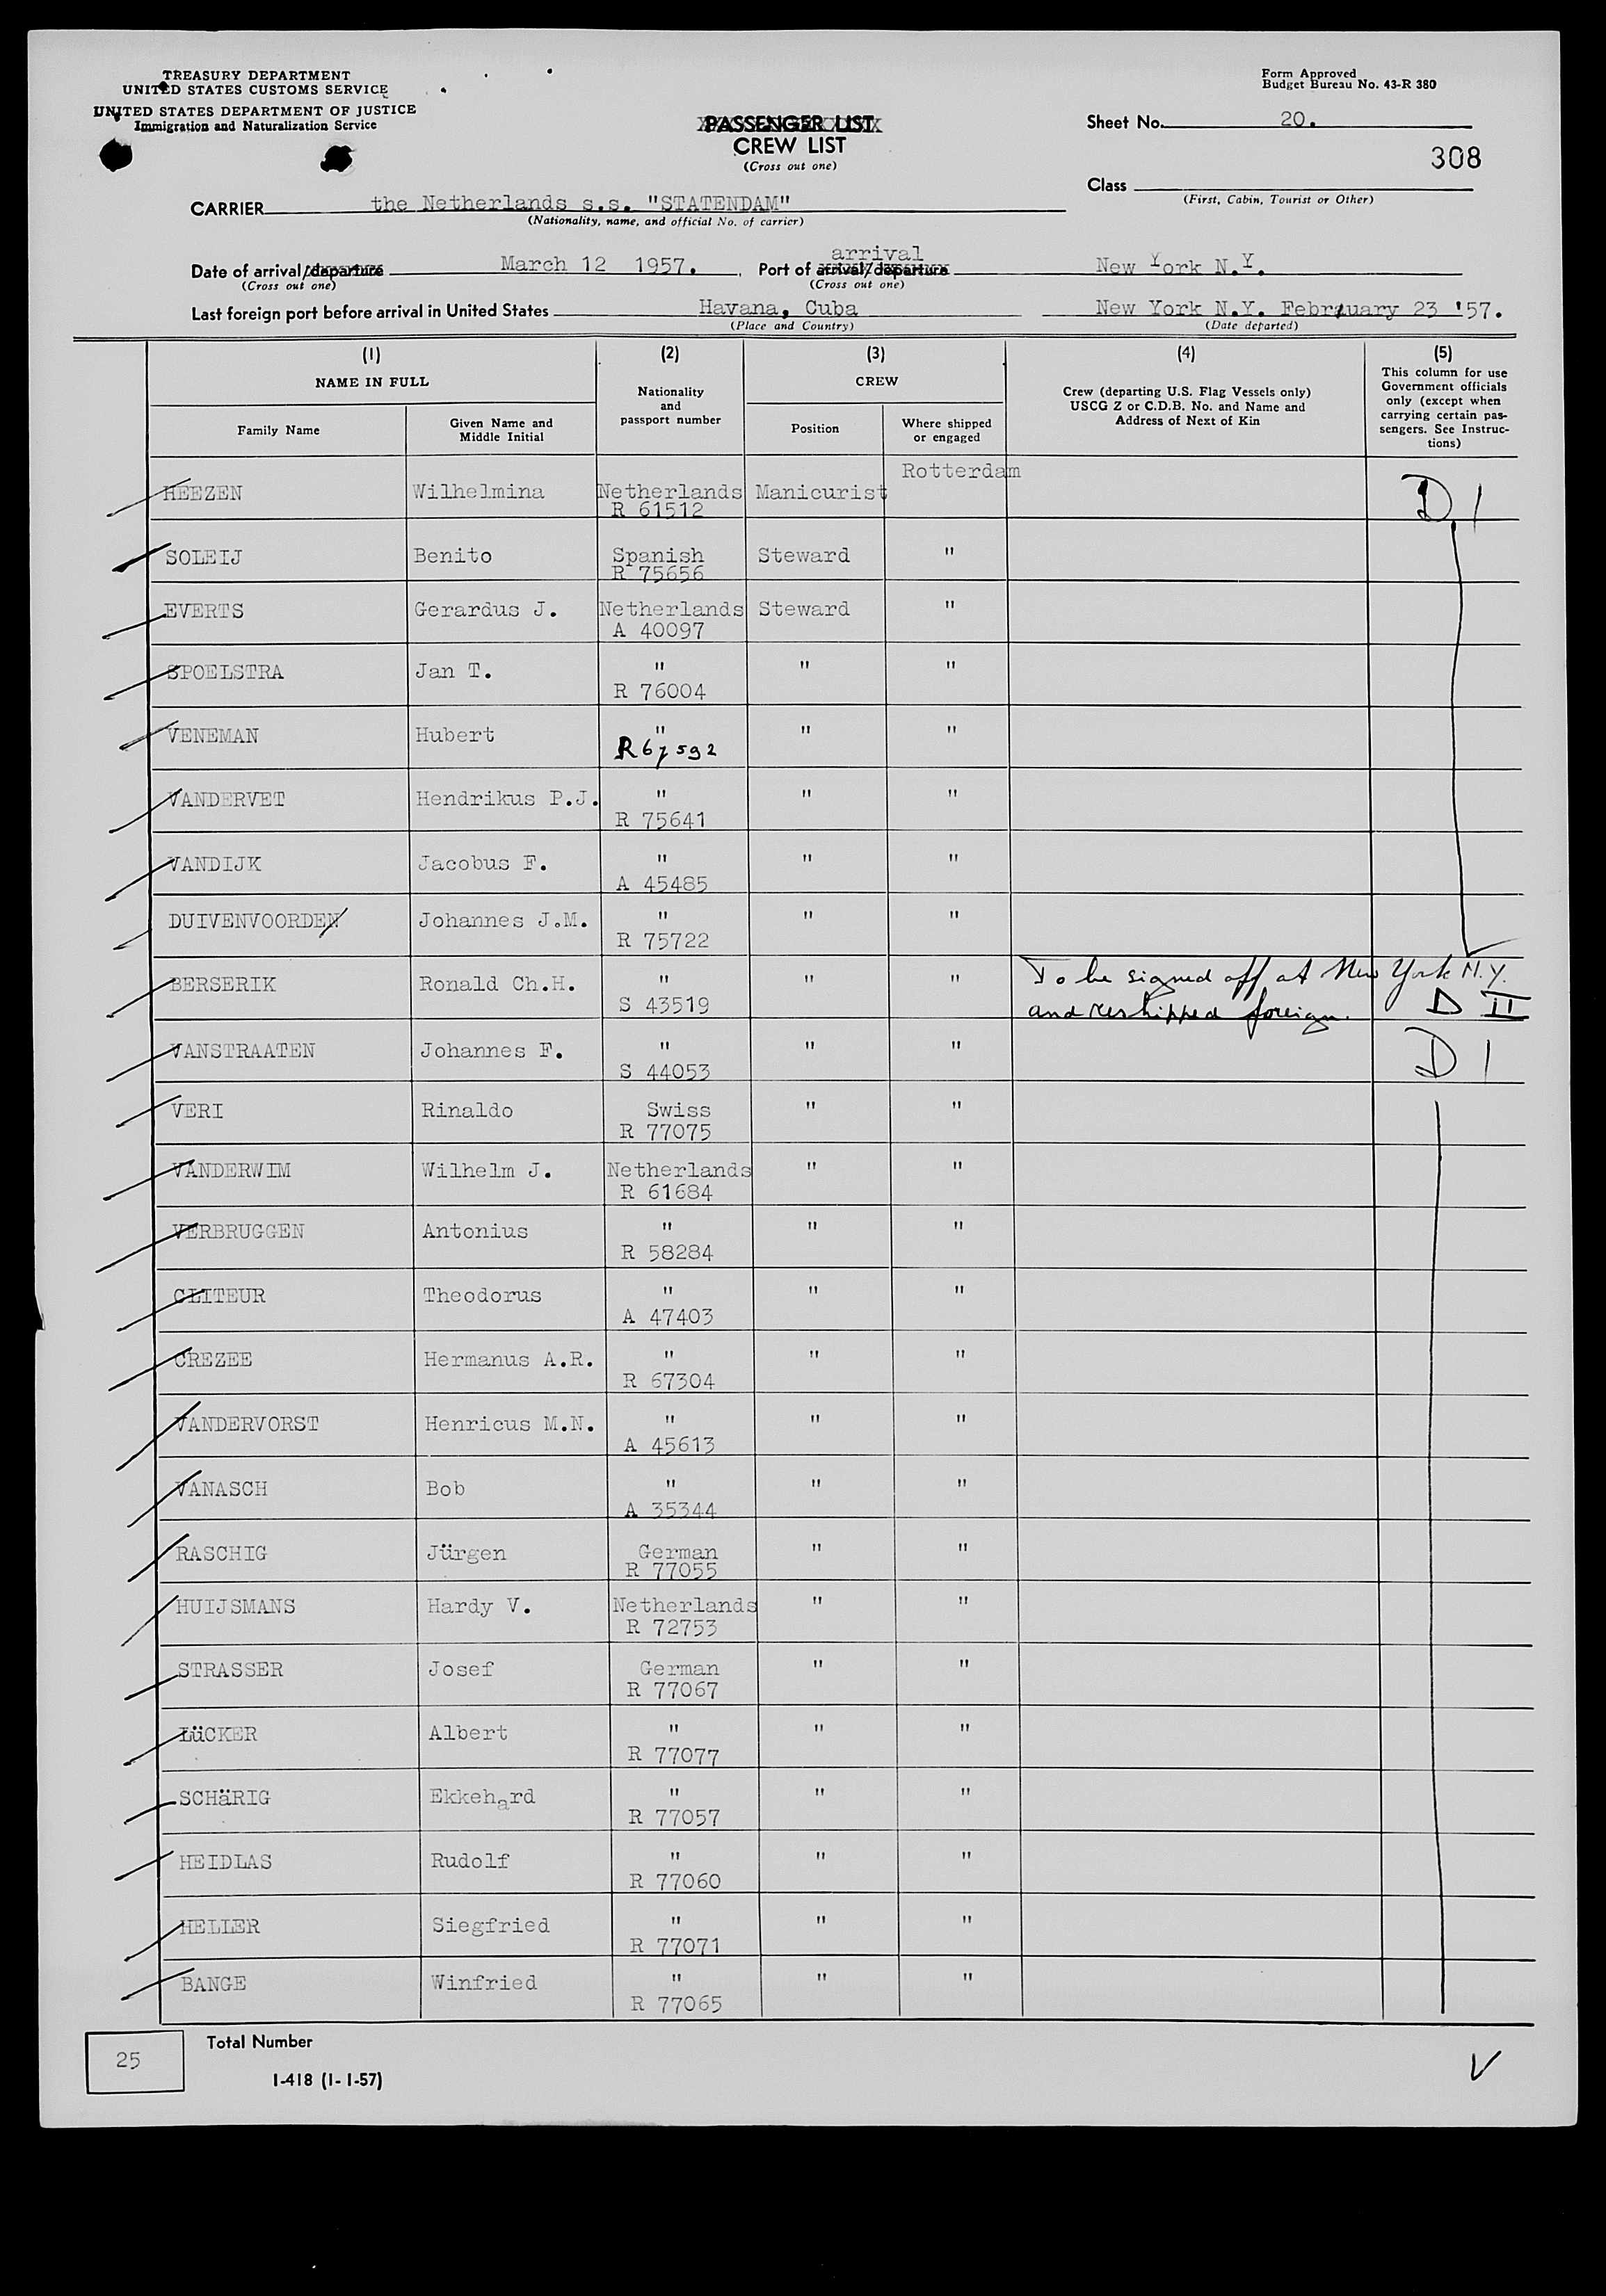 TREASURY DEPARTMENT
UNITED STATES CUSTOMS SERVICE
UNITED STATES DEPARTMENT OF JUSTICE
Immigration and Naturalization Service
Form Approved
Budget Bureau No. 43-R 380
PASSENGER LIST
CREW LIST
(Cross out one)
Sheet No. 20.
308
Class
(First, Cabin, Tourist or Other)
CARRIER the Netherlands s.s. "STATENDAM"
(Nationality, name, and official No. of carrier)
arrival
Date of arrival/departure March 12 1957. Port of arrival/departure New York N.Y.
(Cross out one) (Cross out one)
Last foreign port before arrival in United States Havana, Cuba New York N.Y. February 23 '57.
(Place and Country) (Date departed)
(1) (2) (3) (4) (5)
NAME IN FULL
Nationality and passport number
CREW
Crew (departing U.S. Flag Vessels only)
USCG Z or C.D.B. No. and Name and
Address of Next of Kin
This column for use
Government officials
only (except when
carrying certain pas-
sengers. See Instruc-
tions)
Family Name Given Name and Middle Initial Position Where shipped or engaged
Rotterdam
HEEZEN Wilhelmina Netherlands Manicurist D 1
R 61512
SOLEIJ Benito Spanish Steward "
R 75656
EVERTS Gerardus J. Netherlands Steward "
A 40097
SPOELSTRA Jan T. " " "
R 76004
VENEMAN Hubert " " "
R 67592
VANDERVET Hendrikus P.J. " " "
R 75641
VANDIJK Jacobus F. " " "
A 45485
DUIVENVOORDEN Johannes J.M. " " "
R 75722
BERSERIK Ronald Ch.H. " " " To be signed off at New York N.Y.
S 43519 and reshipped foreign. D II
VANSTRAATEN Johannes F. " " " D 1
S 44053
VERI Rinaldo Swiss " "
R 77075
VANDERWIM Wilhelm J. Netherlands " "
R 61684
VERBRUGGEN Antonius " " "
R 58284
CLITEUR Theodorus " " "
A 47403
CREZEE Hermanus A.R. " " "
R 67304
VANDERVORST Henricus M.N. " " "
A 45613
VANASCH Bob " " "
A 35344
RASCHIG Jürgen German " "
R 77055
HUIJSMANS Hardy V. Netherlands " "
R 72753
STRASSER Josef German " "
R 77067
LüCKER Albert " " "
R 77077
SCHäRIG Ekkehard " " "
R 77057
HEIDLAS Rudolf " " "
R 77060
HELIER Siegfried " " "
R 77071
BANGE Winfried " " "
R 77065
25 Total Number
I-418 (1-1-57)